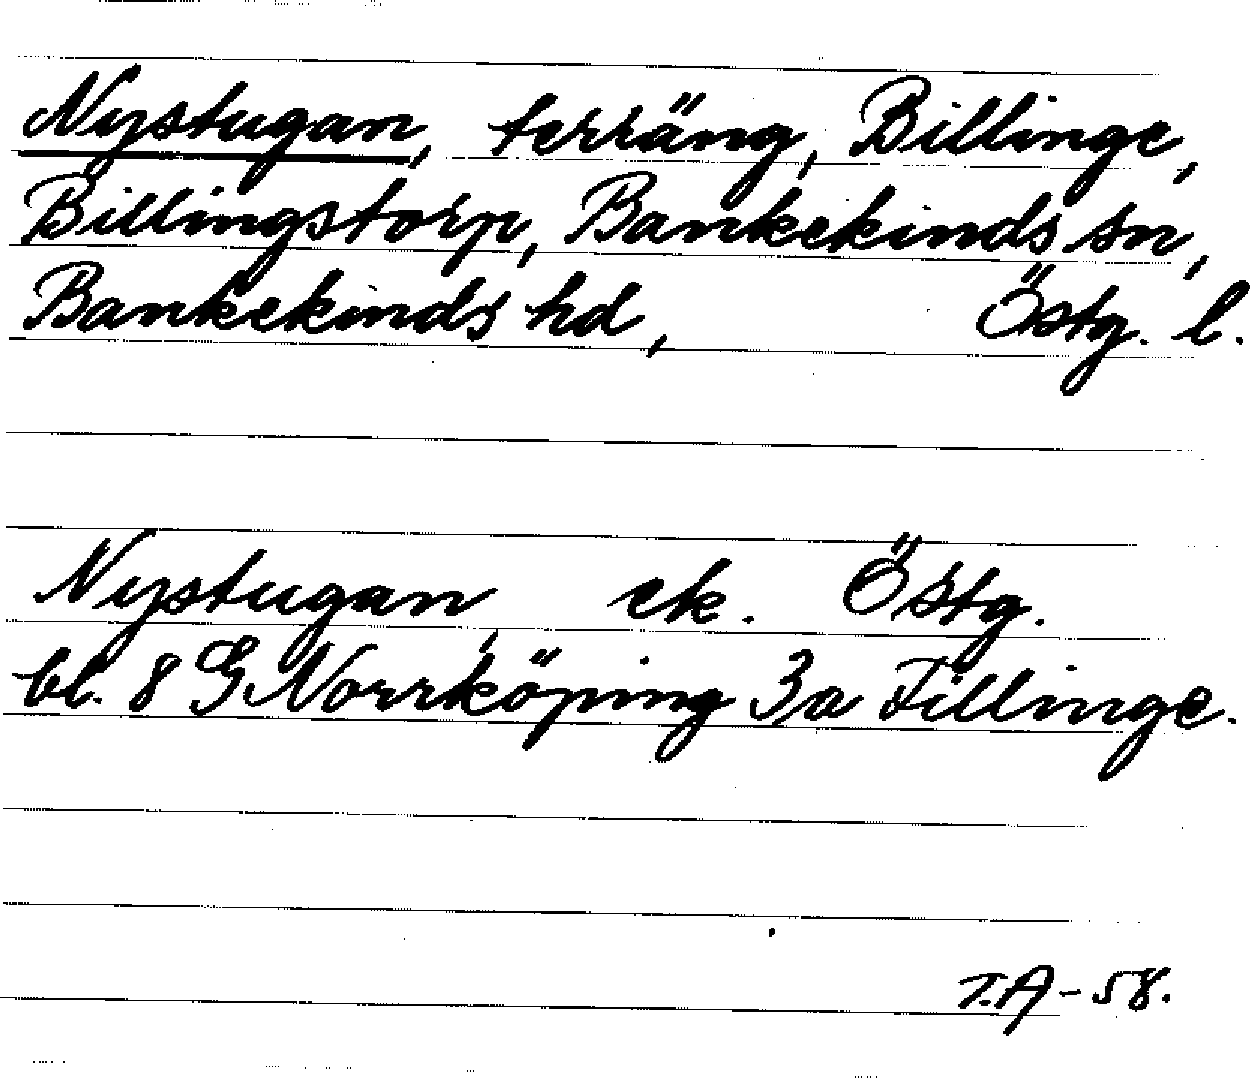 Nystugan, terräng, Billinge,
Billingstorp, Bankekinds sn,
Bankekinds hd, Östg. l.
Nystugan, ek. Östg.
bl. 8 G Norrköping 3a Fillinge.
T.A-58.